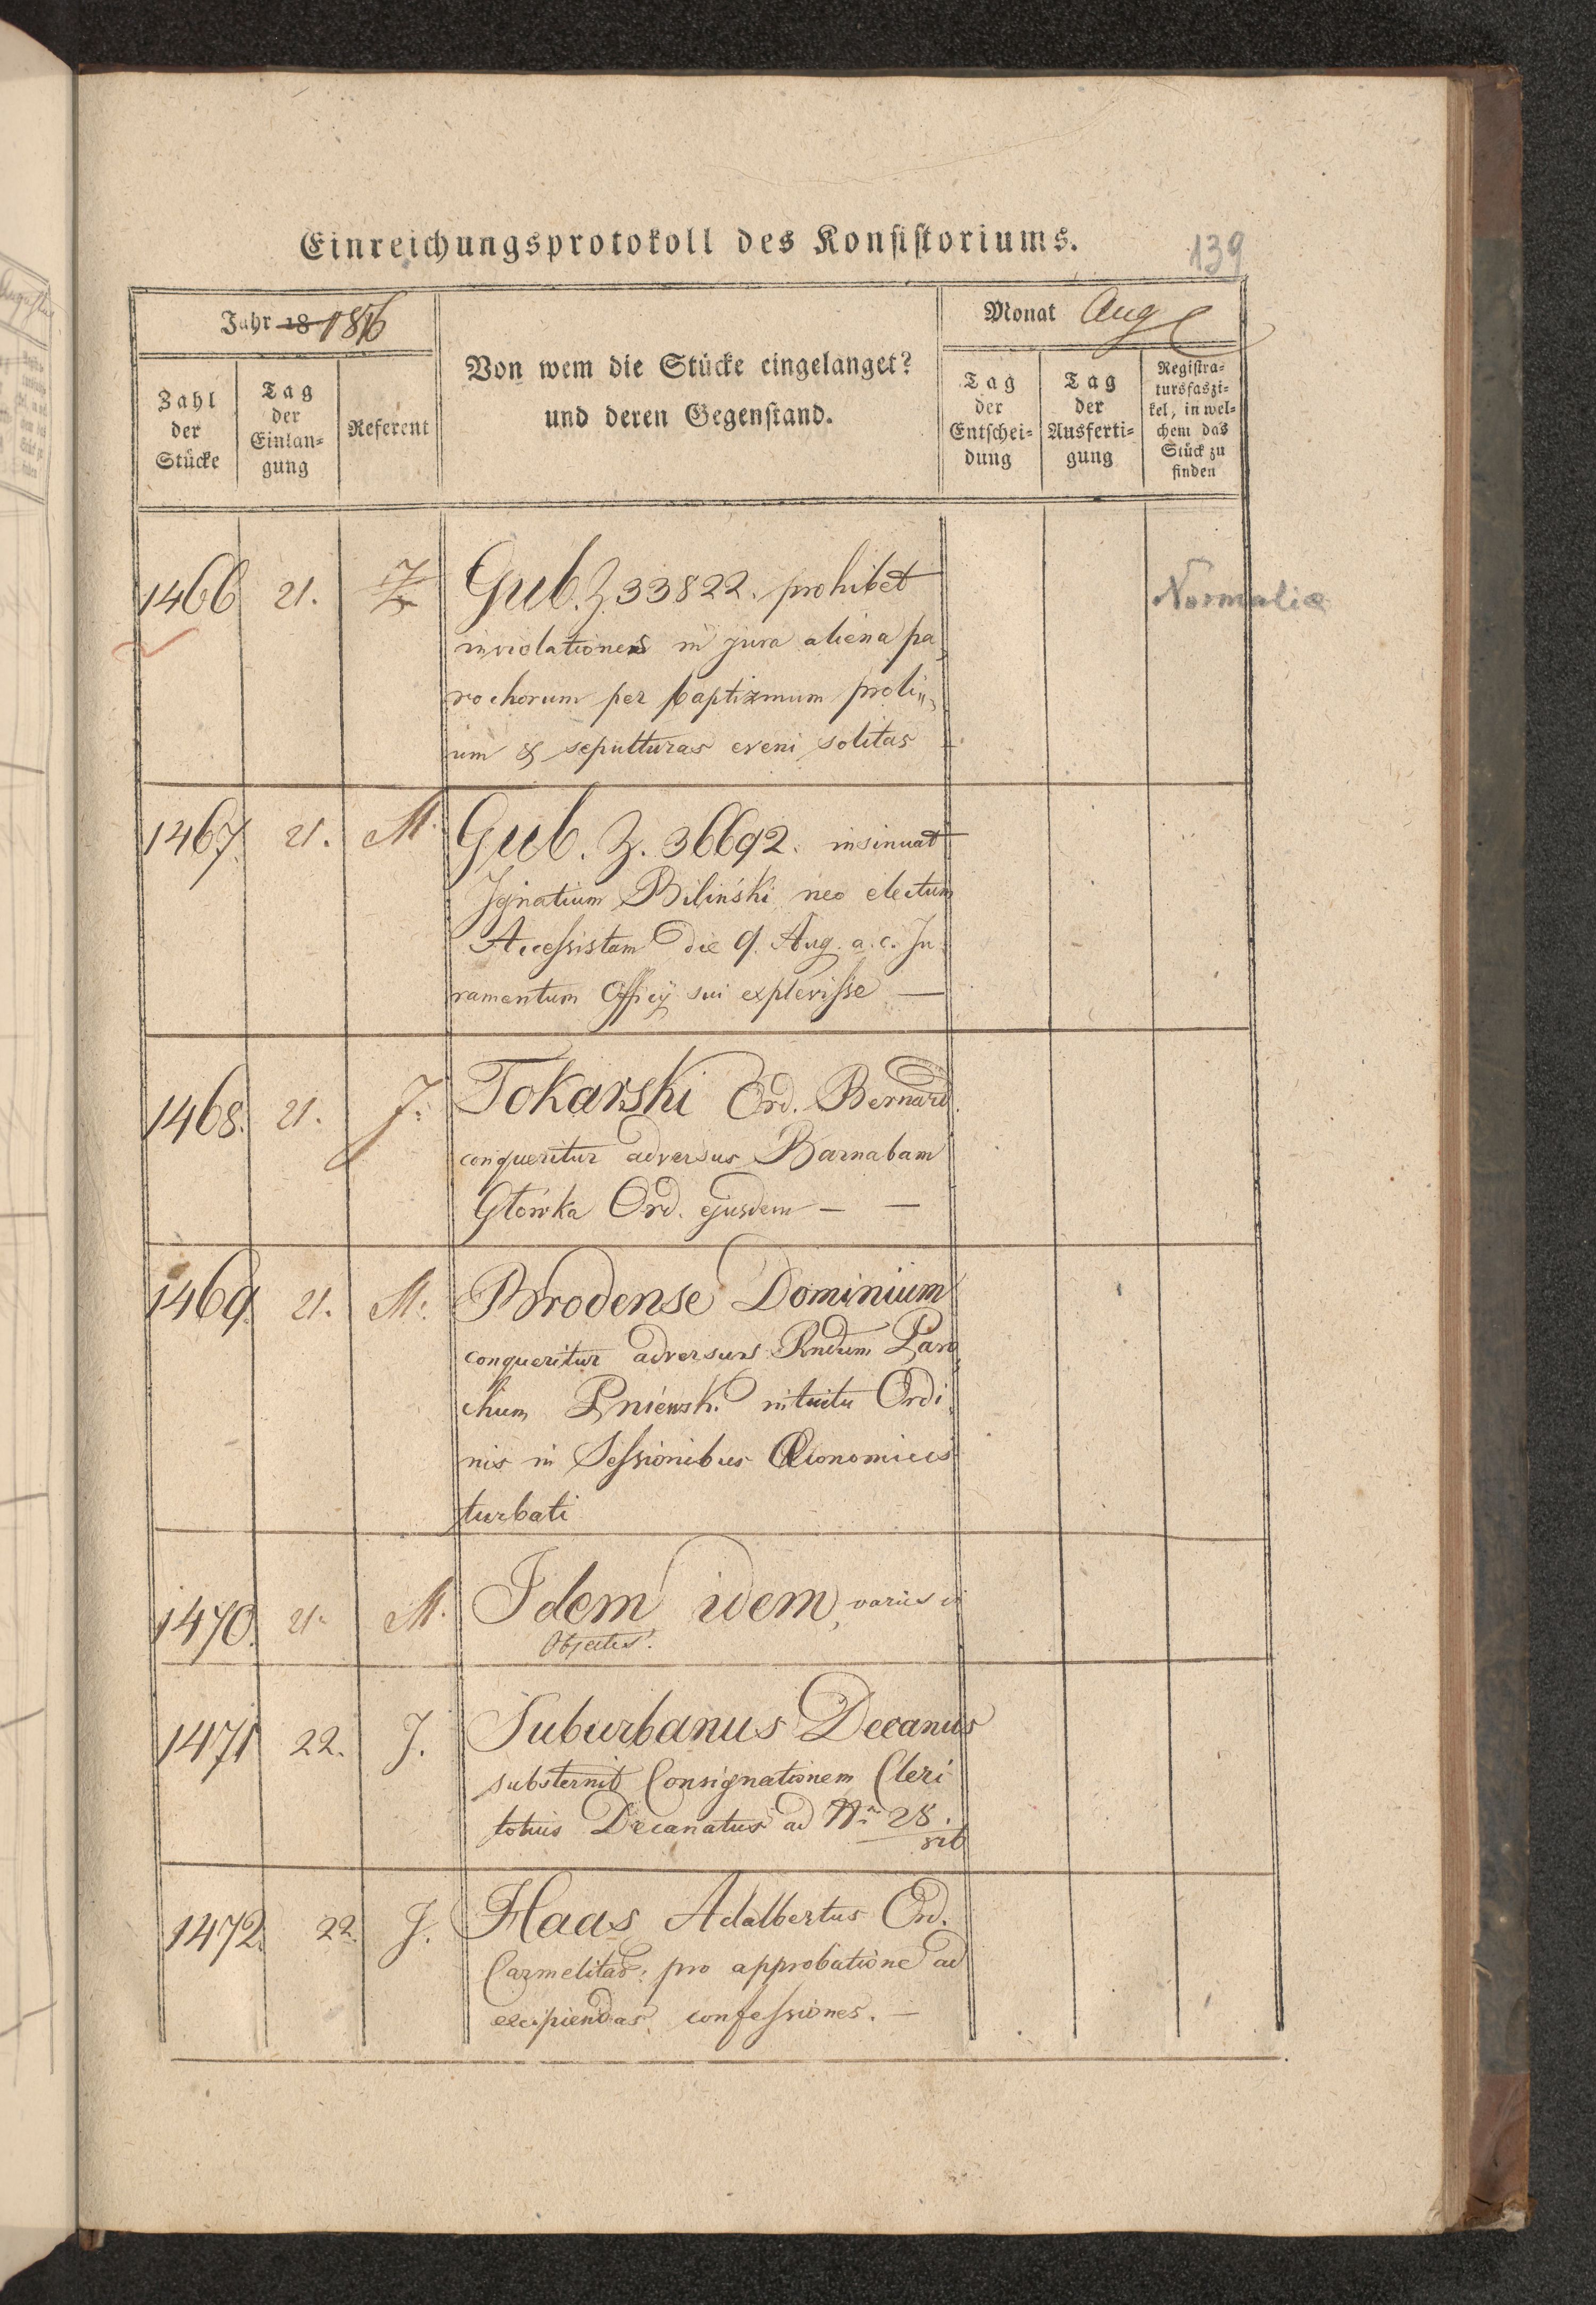 Einreichungsprotokoll des Konsistoriums.
139
Jahr 18 1816
Monat Aug
Zahl der Stücke
Tag der Einlangung
Referent
Von wem die Stücke eingelanget?
und deren Gegenstand.
Tag der Entscheidung
Tag der Ausfertigung
Registratursfaszikel, in welchem das Stück zu finden
1466 21. Z Gub. Z. 33822. prohibet Normalia
inviolationes in jura aliena pa
rochorum per baptizmum proli
um & sepulturas eveni solitas
1467. 21. M. Gub. Z. 36692. insinuat
Ignatium Biliński neo electum
Accessistam die 9. Aug. a. c. Ju
ramentum Officÿ sui explevisse —
1468. 21. J. Tokarski Ord. Bernard.
conqueritur adversus Barnabam
Głowka Ord. ejusdem — —
1469. 21. M. Brodense Dominium
conqueritur adversus Rndum Paro
chum Pniewsk. intuitu Ordi
nis in Sessionibus Oeconomicis
turbati
1470. 21. M. Idem idem, variis in
Objectis.
1471 22. J. Suburbanus Decanus
substernit Consignationem Cleri
totius Decanatus ad Nr. 28.
1472. 22. J. Haas Adalbertus Ord.
Carmelitar. pro approbatione ad
excipiendas confessiones. —